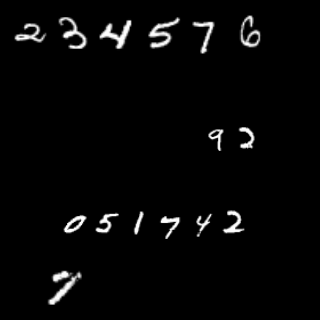 234576
92
051742
7